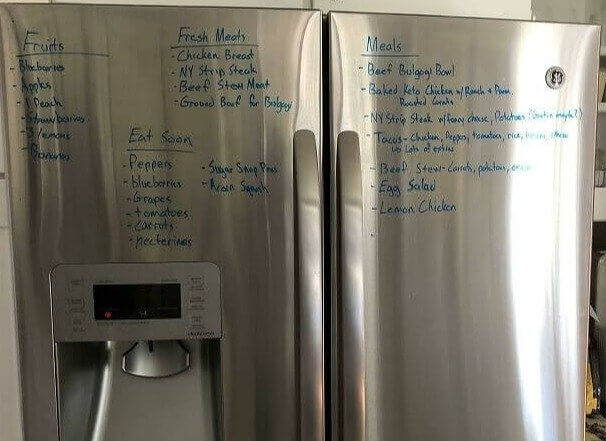 Fruits
- Blueberries
- Apples
- 1 Peach
- Strawberries
- 3 lemons
- Bananas
Fresh Meats
- Chicken Breast
- NY Strip Steak
- Beef Stew Meat
- Ground Beef for Bulgogi
Eat Soon
- Peppers
- blueberries
- Grapes
- tomatoes
- carrots
- necterines
- Sugar Snap Peas
- Acorn Squash
Meals
- Beef Bulgogi Bowl
- Baked Keto Chicken w/ Ranch + Parm,
Roasted Carrots
- NY Strip Steak w/ cheese, Potatoes
- Tacos - Chicken, Peppers, tomatoes, rice, beans, cheese
w/ Lots of extras
- Beef Stew - Carrots, potatoes, onion
- Egg Salad
- Lemon Chicken
-
GE